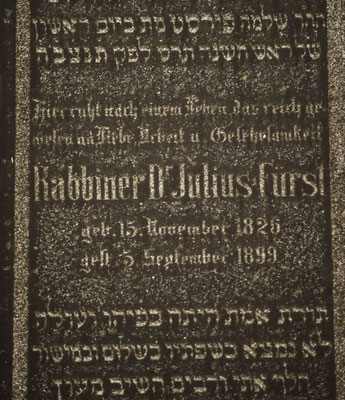 הרך שלמה פירסט מת ביום ראשון
של ראש השנה תרס לפק תנצבה
Hier ruht nach einem Leben das reich ge-
wesen an Liebe Arbeit u. Gelehrsamkeit
Rabbiner Dr Julius Fürst
geb. 15. November 1826
gest. 5. September 1899.
תורת אמת היתה בפיהו ועולה
לא נמצא בשפתיו בשלום ובמישור
הלך אתי ורבים השיב מעון